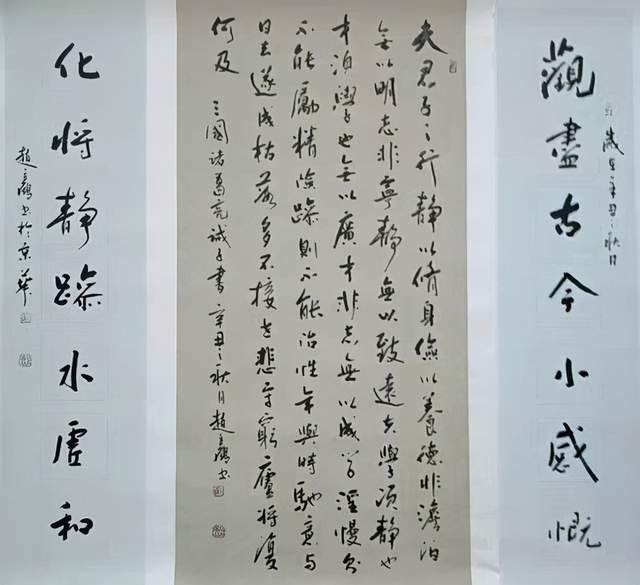 歲在辛丑之秋月
觀盡古今小感慨
夫君子之行静以脩身儉以養德非澹泊
無以明志非寧静無以致遠夫學須静也
才須學也無以廣才非志無以成学淫慢則
不能勵精險躁則不能治性年與時馳意与
日去遂成枯落多不接世悲守窮廬將復
何及 三國諸葛亮誡子書 辛丑之秋月趙書
化将静躁水虚和
趙書於京華